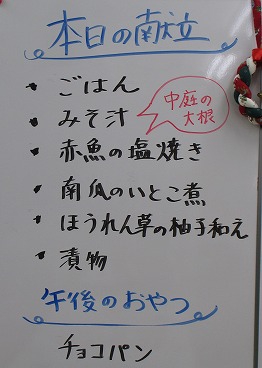 本日の献立
・ごはん
・みそ汁
中庭の
大根
・赤魚の塩焼き
・南瓜のいとこ煮
・ほうれん草の柚子和え
・漬物
午後のおやつ
チョコパン